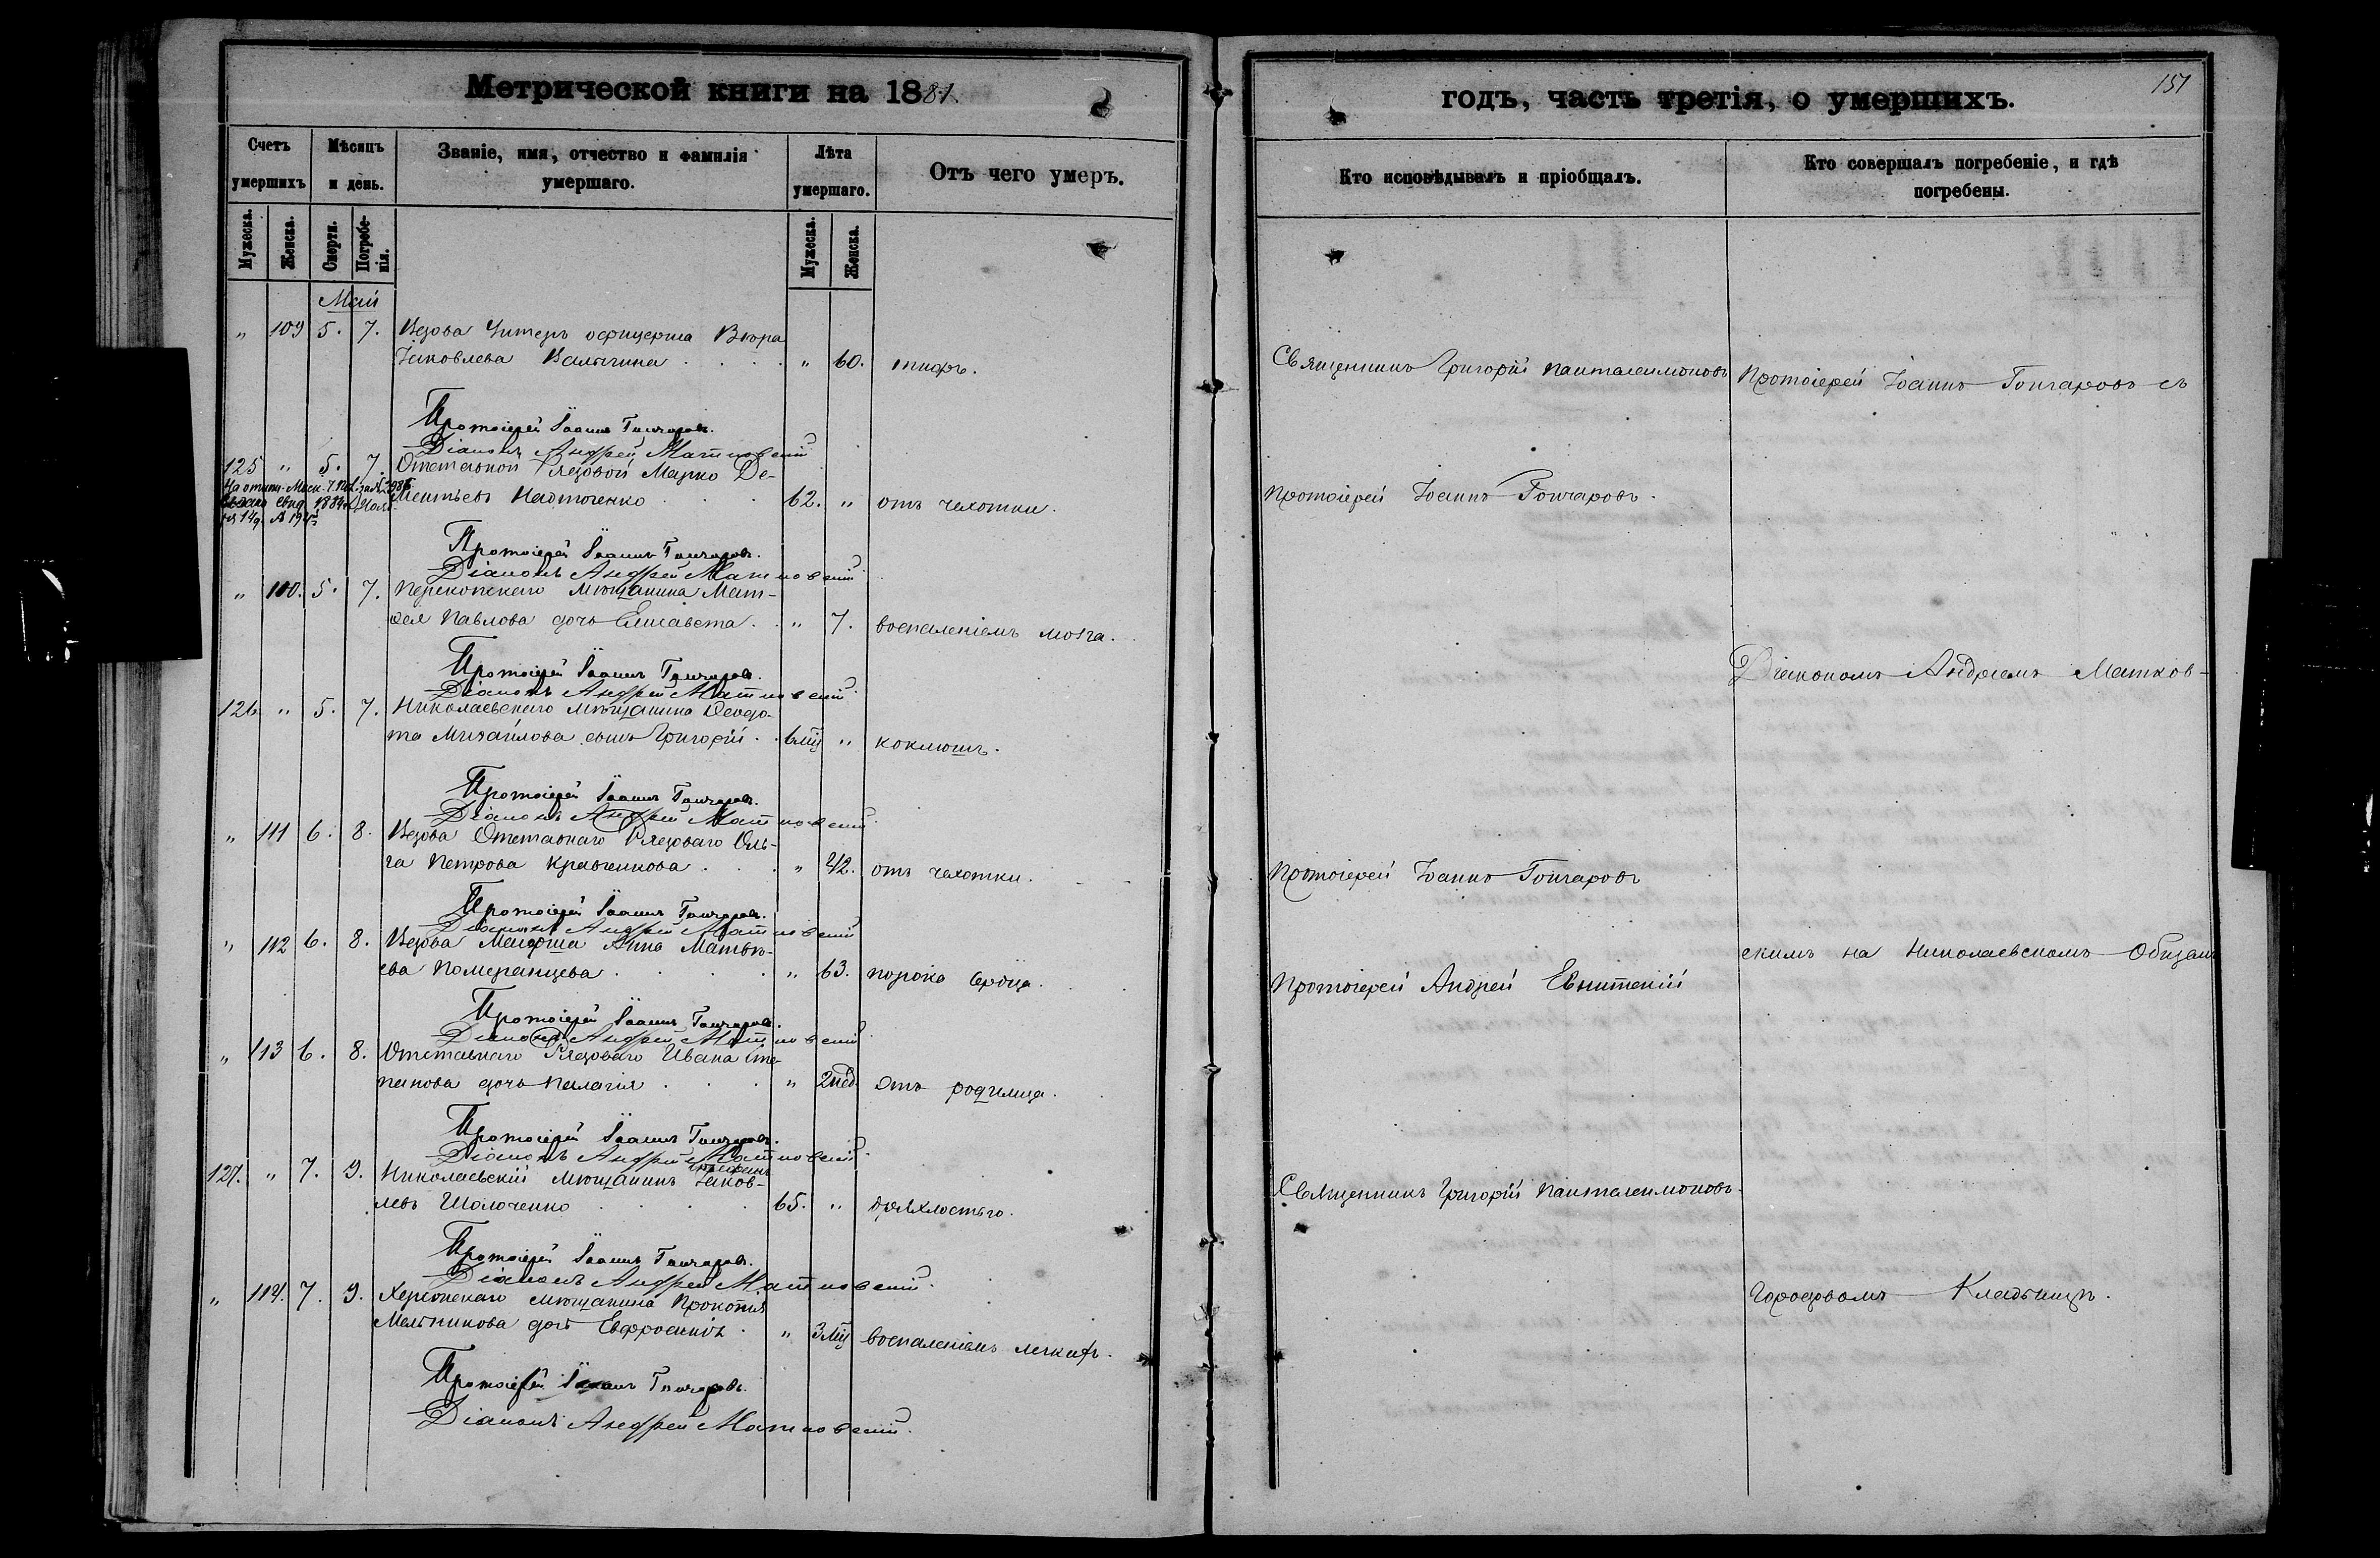 Метрической книги на 1881.
Счетъ умершихъ
Мѣсяцъ и день.
Званіе, имя, отчество и фамилія умершаго.
Лѣта умершаго.
Отъ чего умеръ.
Мужеска.
Женска.
Смерти.
Погребенія.
Мужеска.
Женска.
Май
„ 109 5. 7. Вдова Унтеръ офицерша Вѣра
Іаковлева „ 60. тифъ.
Протоіерей Іоаннъ Гончаровъ.
Діаконъ Андрей Матковскій
125 „ 5. 7. Отставной Рядовой Марко Де-
ментьевъ 62. „ отъ чахотки.
Протоіерей Іоаннъ Гончаровъ.
Діаконъ Андрей Матковскій
„ 110. 5. 7. Перекопскаго Мѣщанина Мат-
ѳея Павлова дочь Елисавета . . „ 7. воспаленіемъ мозга.
Протоіерей Іоаннъ Гончаровъ.
Діаконъ Андрей Матковскій
126 „ 5. 7. Николаевскаго Мѣщанина Ѳеодо-
та Михайлова сынъ Григорій . . 6 мц „ коклюшъ.
Протоіерей Іоаннъ Гончаровъ.
Діаконъ Андрей Матковскій
„ 111 6. 8. Вдова Отставнаго Рядоваго Оль-
га Петрова Кравченкова . . . „ 42. отъ чахотки.
Протоіерей Іоаннъ Гончаровъ.
Діаконъ Андрей Матковскій
„ 112 6. 8. Вдова Анна Матвѣ-
ева Померанцева . . . . „ 63. порока сердца.
Протоіерей Іоаннъ Гончаровъ.
Діаконъ Андрей Матковскій
„ 113 6. 8. Отставнаго Рядоваго Ивана Сте-
панова дочь Пелагія . . . „ 2 нед. Отъ родимца.
Протоіерей Іоаннъ Гончаровъ.
Діаконъ Андрей Матковскій
127. „ 7. 9. Николаевскій Мѣщанинъ Іаков-
левъ Шолоченко . . . . 65. „ дряхлостью.
Протоіерей Іоаннъ Гончаровъ.
Діаконъ Андрей Матковскій.
„ 114. 7. 9. Херсонскаго мѣщанина Прокопія
Мельникова дочь Евфросинія . „ 3 мц воспаленіемъ легкихъ.
Протоіерей Іоаннъ Гончаровъ.
Діаконъ Андрей Матковскій.
годъ, часть третія, о умершихъ.
151
Кто исповѣдывалъ и пріобщалъ.
Кто совершалъ погребеніе, и гдѣ погребены.
Священникъ Григорій Пантелеимоновъ
Протоіерей Іоаннъ Гончаровъ съ
Протоіерей Іоаннъ Гончаровъ.
Діакономъ Андреемъ Матков-
Протоіерей Іоаннъ Гончаровъ
скимъ на Николаевскомъ Общемъ
Протоіерей Андрей
Священникъ Григорій Пантелеимоновъ.
Городовомъ Кладбищѣ.